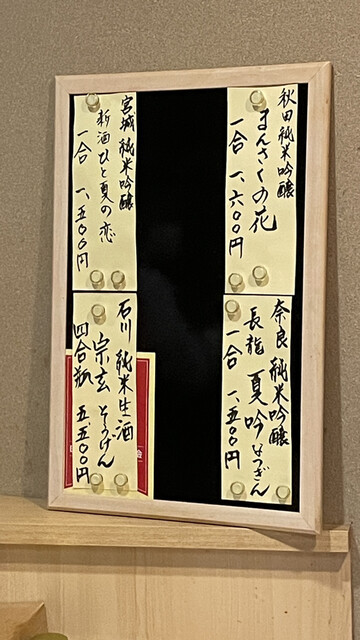 秋田純米吟醸
まんさくの花
一合 一、六〇〇円
宮城 純米吟醸
新酒ひと夏の恋
一合 一、五〇〇円
奈良 純米吟醸
長龍 夏吟 なつぎん
一合 一、五〇〇円
石川 純米生酒
宗玄 そうげん
四合瓶 五、五〇〇円